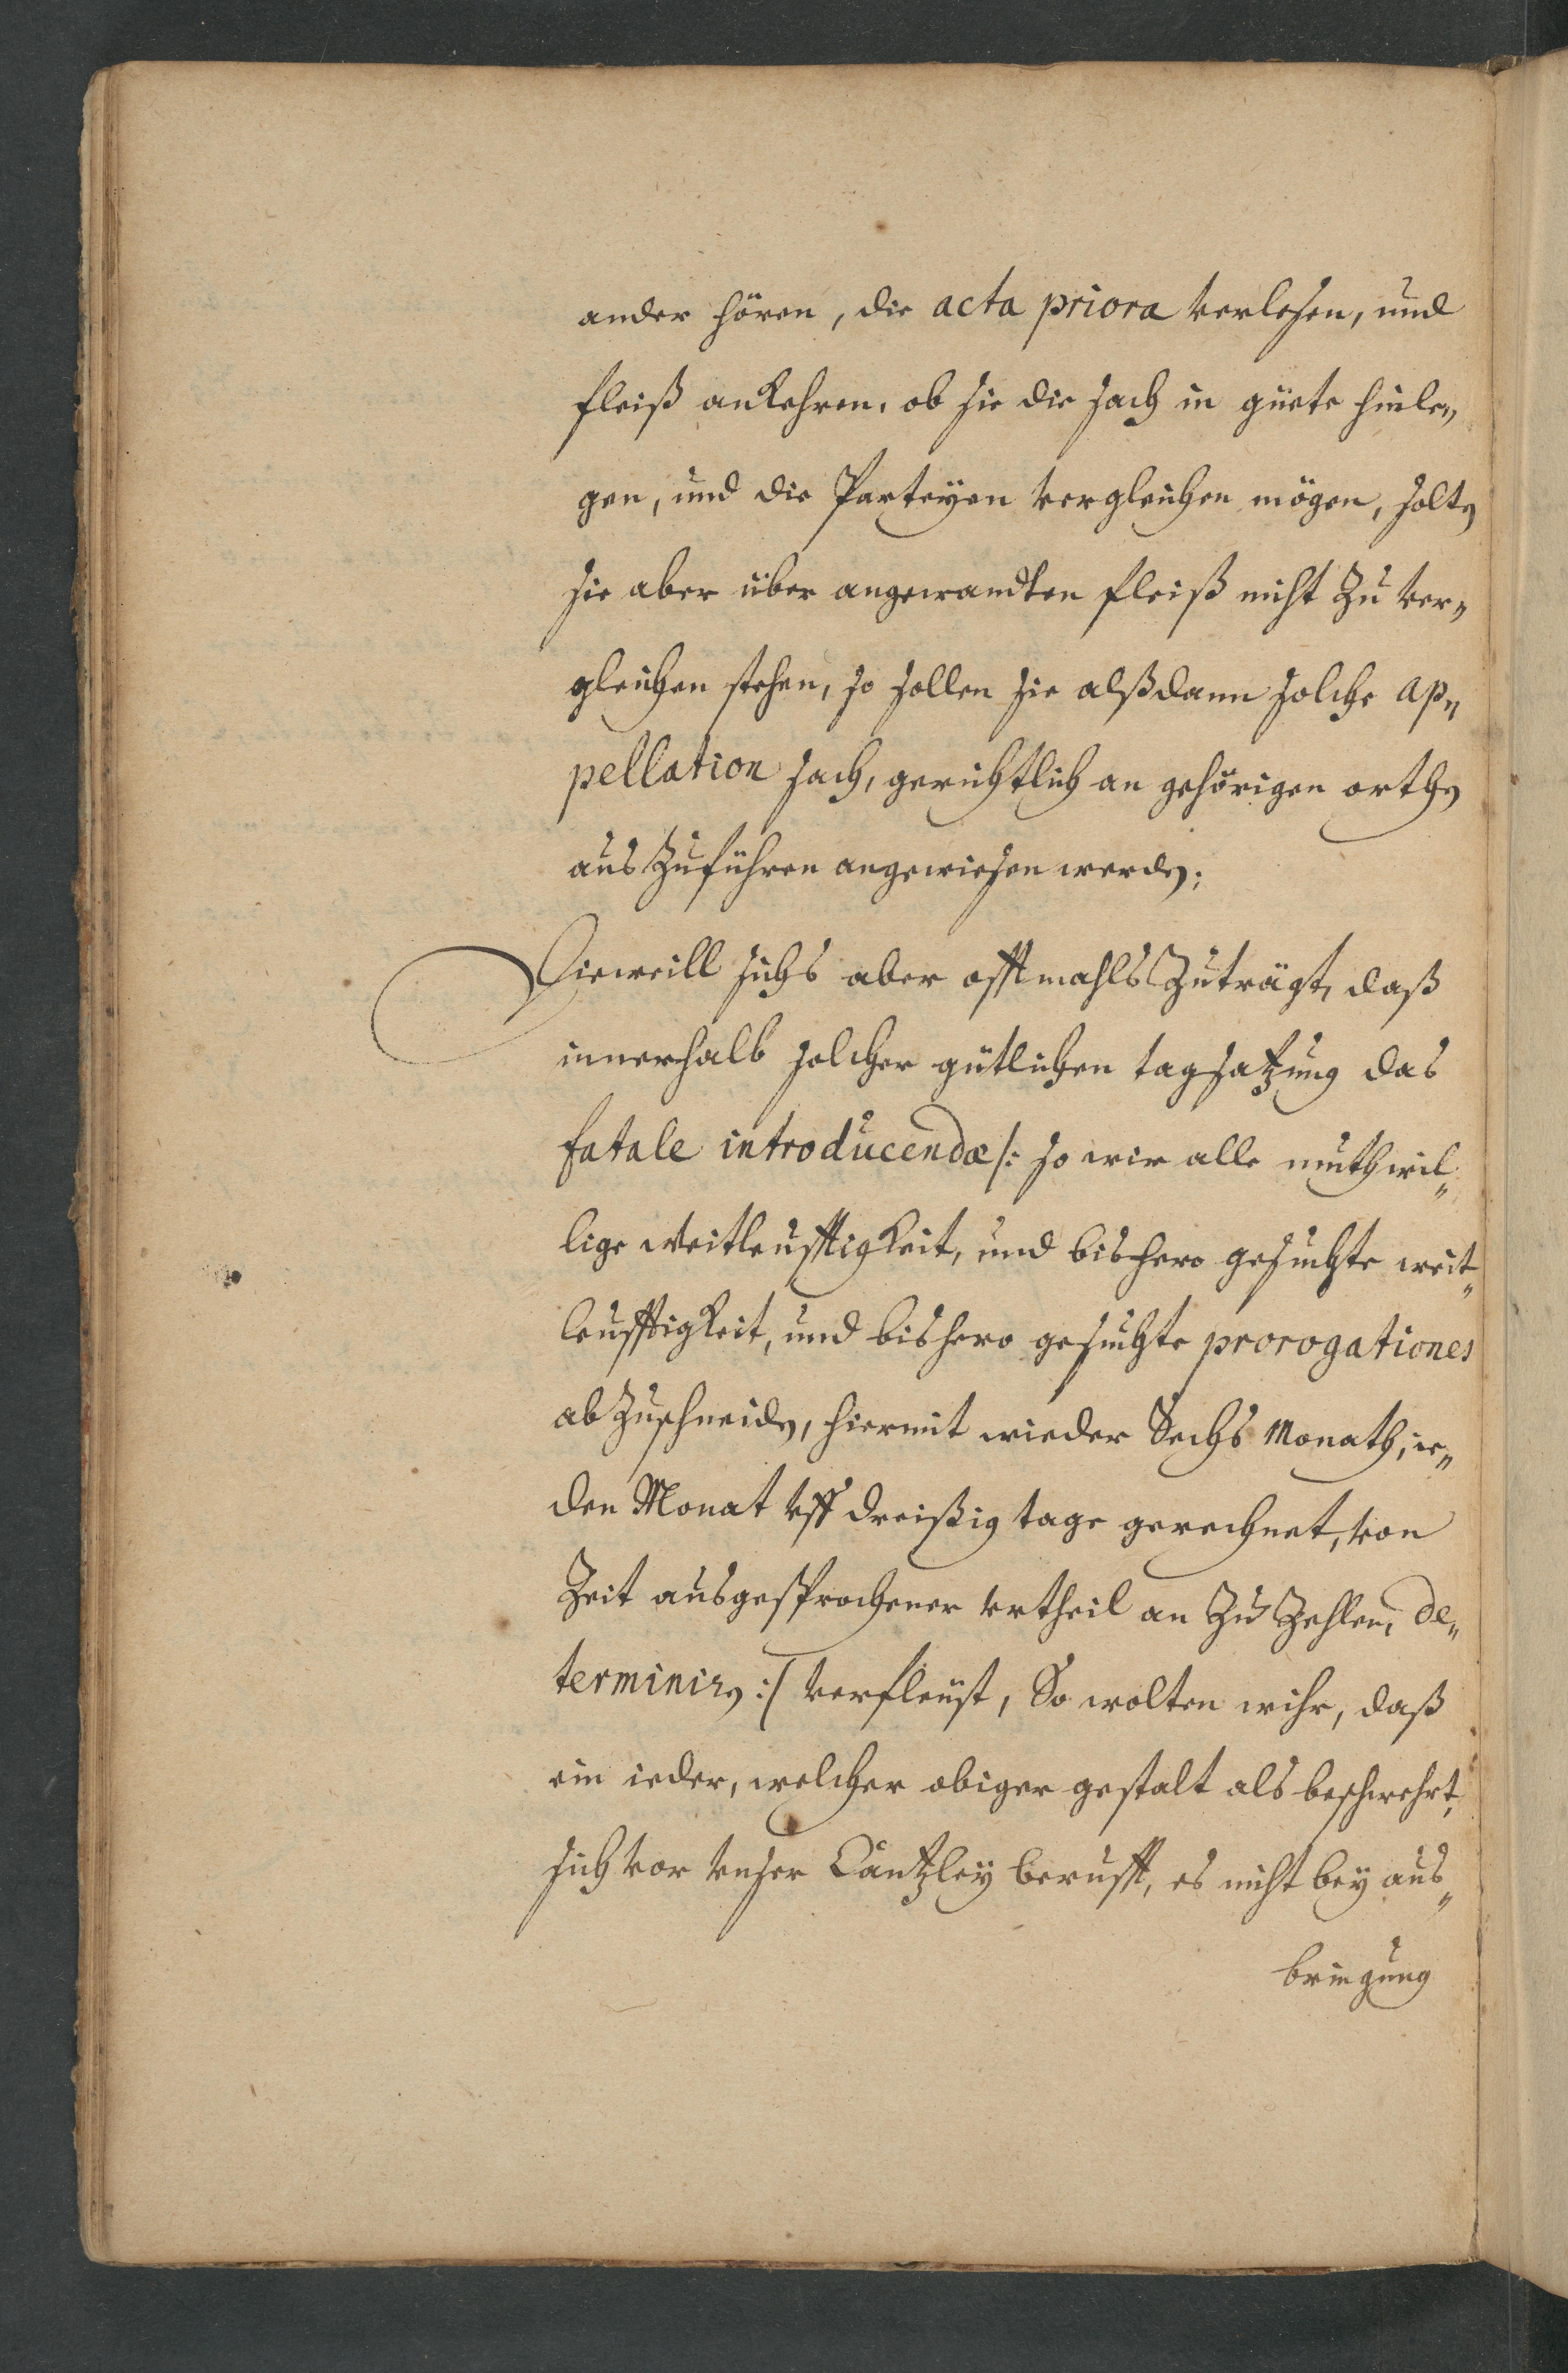 ander hören, die acta priora verlesen, und
fleiß ankehren, ob sie die sach in güete hinle„
gen, und die Parteyen vergleichen mögen, solten
sie aber über angewandten fleiß nicht zu ver„
gleichen stehen, so sollen sie alßdann solche ap„
pellation sach, gerichtlich an gehörigen orthen
auszuführen angewiesen werden;
Dieweill sichs aber offtmahls zuträgt, daß
innerhalb solcher gütlichen tagsatzung das
fatale introducendæ /: so wir alle muthwil„
lige weitleufftigkeit, und bishero gesuchte weit„
leufftigkeit, und bishero gesuchte prorogationes
abzuschneiden, hiermit wieder Sechs Monath, ie„
den Monat vff dreißig tage gerechnet, von
Zeit ausgesprochener vrtheil an zu zehlen, de„
terminiren :/ verfleust, So wolten wihr, daß
ein ieder, welcher obiger gestalt als beschwehrt,
sich vor vnser Cantzley berufft, es nicht bey aus„
bringung